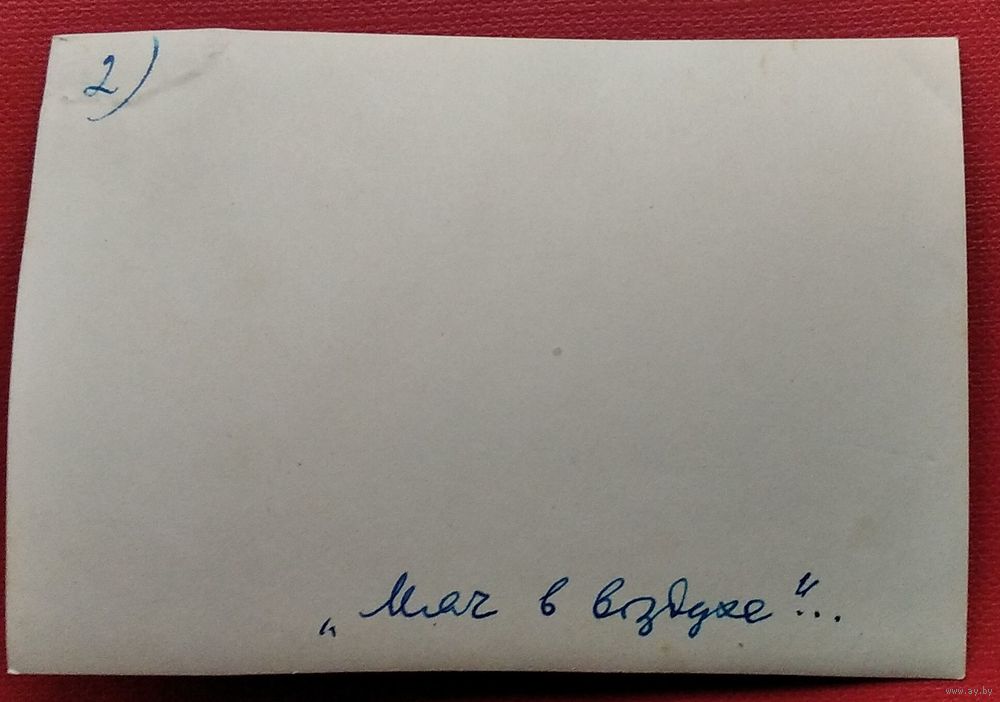 2)
„Мяч в воздухе"...
www.ay.by